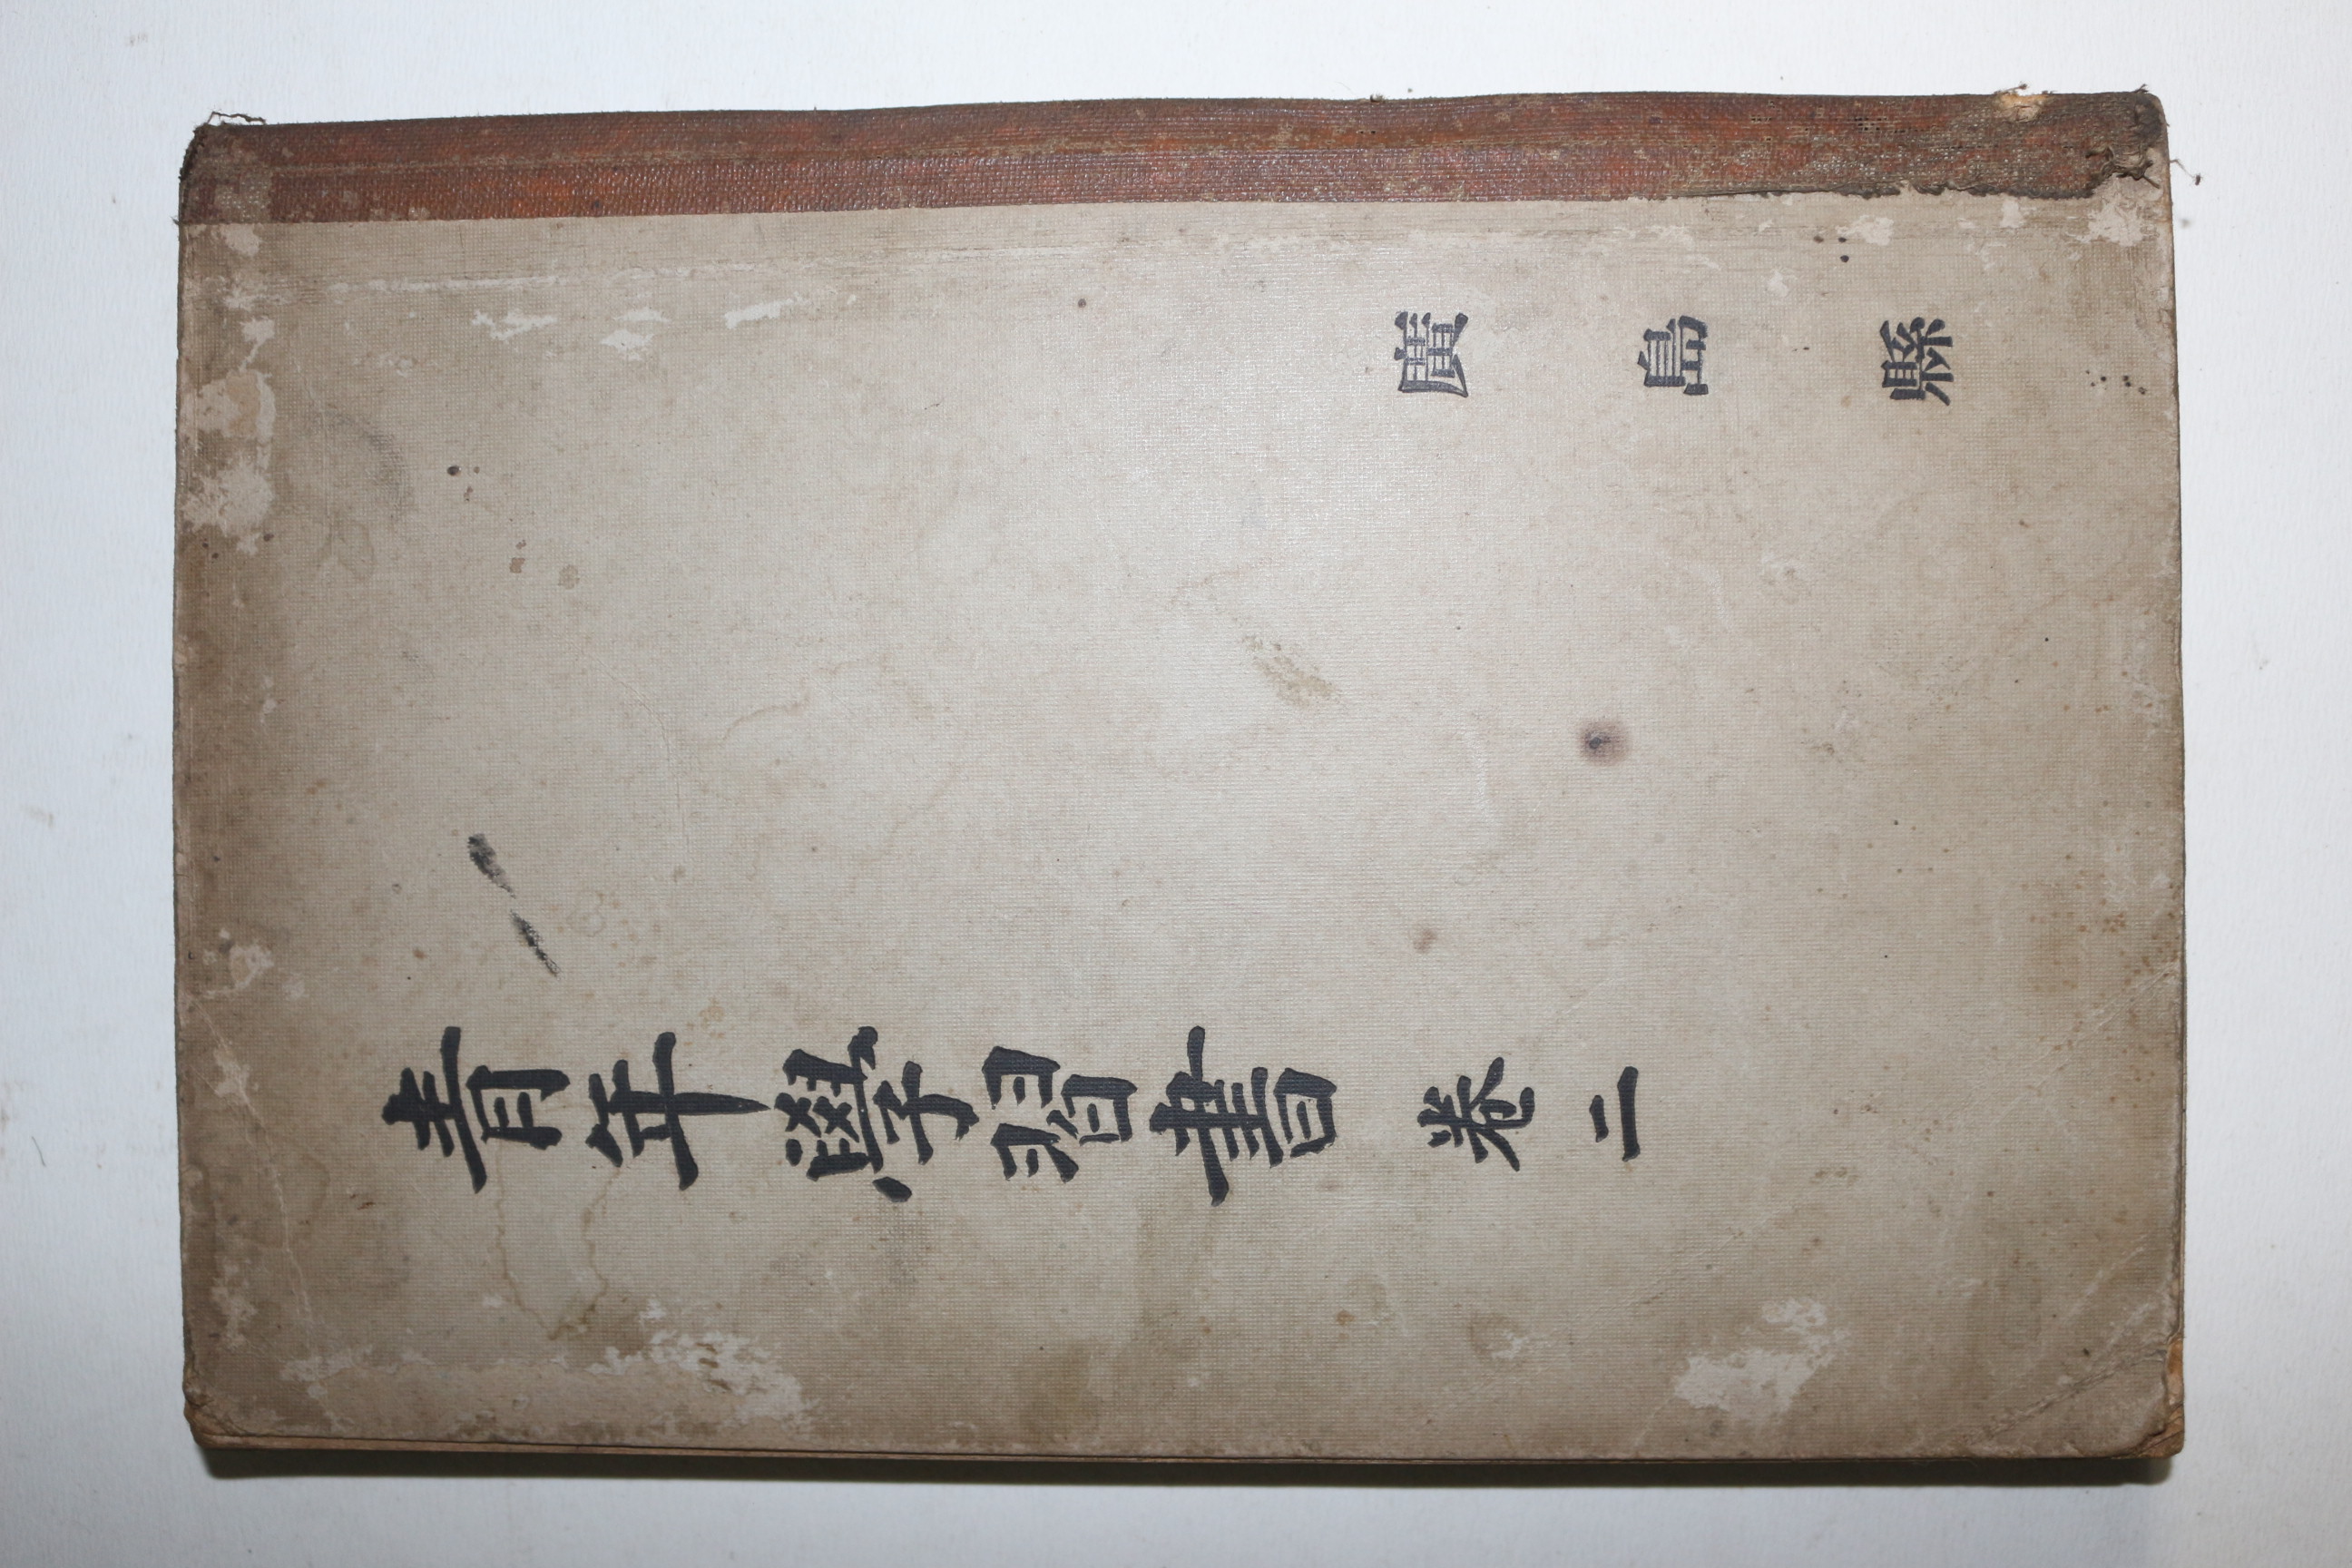 廣島縣
青年學習書 卷二